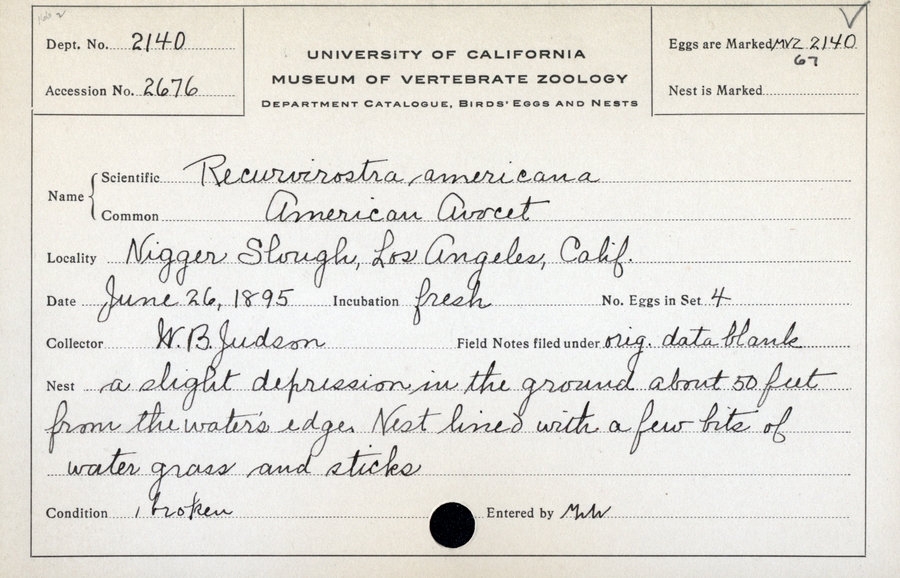 Dept. No. 2140
Accession No. 2676
UNIVERSITY OF CALIFORNIA
MUSEUM OF VERTEBRATE ZOOLOGY
DEPARTMENT CATALOGUE, BIRDS' EGGS AND NESTS
Eggs are Marked MVZ 2140
67
Nest is Marked
Name
Scientific Recurvirostra americana
Common American Avocet
Locality Nigger Slough, Los Angeles, Calif.
Date June 26, 1895 Incubation fresh No. Eggs in Set 4
Collector W. B. Judson Field Notes filed under orig. data blank
Nest a slight depression in the ground about 50 feet
from the water's edge. Nest lined with a few bits of
water grass and sticks
Condition 1 broken Entered by